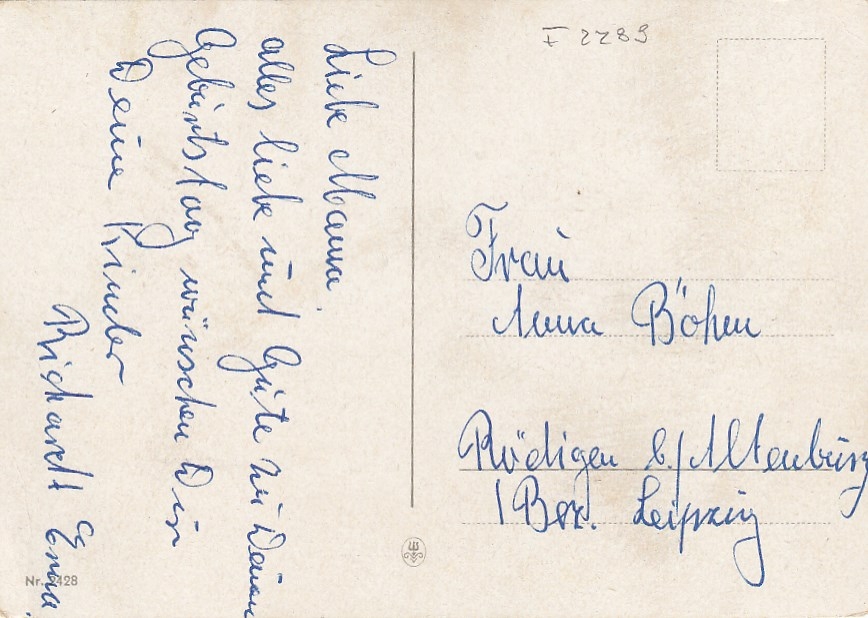 Liebe Mama,
alles liebe und Gute zu Deinem
Geburtstag wünschen Dir
Deine Kinder
Richardt & Erna.
I 2289
Frau
Anna Böhm
Rödigen b./Altenburg
Bez. Leipzig
Nr. 428